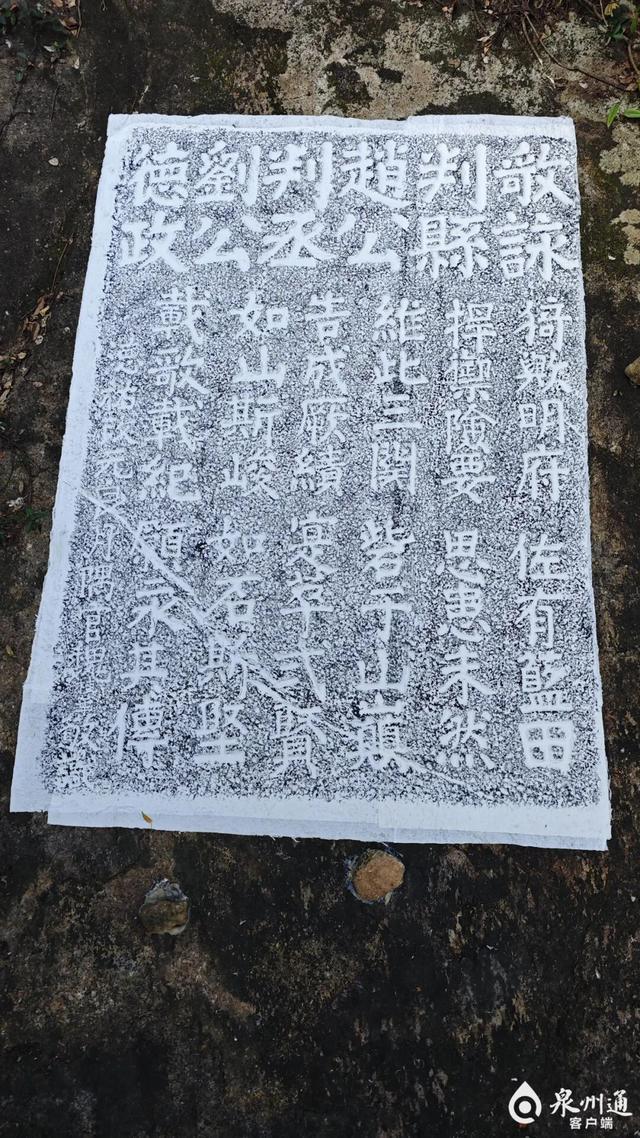 敬詠 猗歟明府 佐有藍田
判縣 捍禦險要 思患未然
趙公 維此三関 砦于山巔
判丞 告成厥績 寔弍賢
劉公 如山斯峻 如石斯堅
德政 載歌載紀 願永其傳
元月隅官倪敬
泉州通
客户端